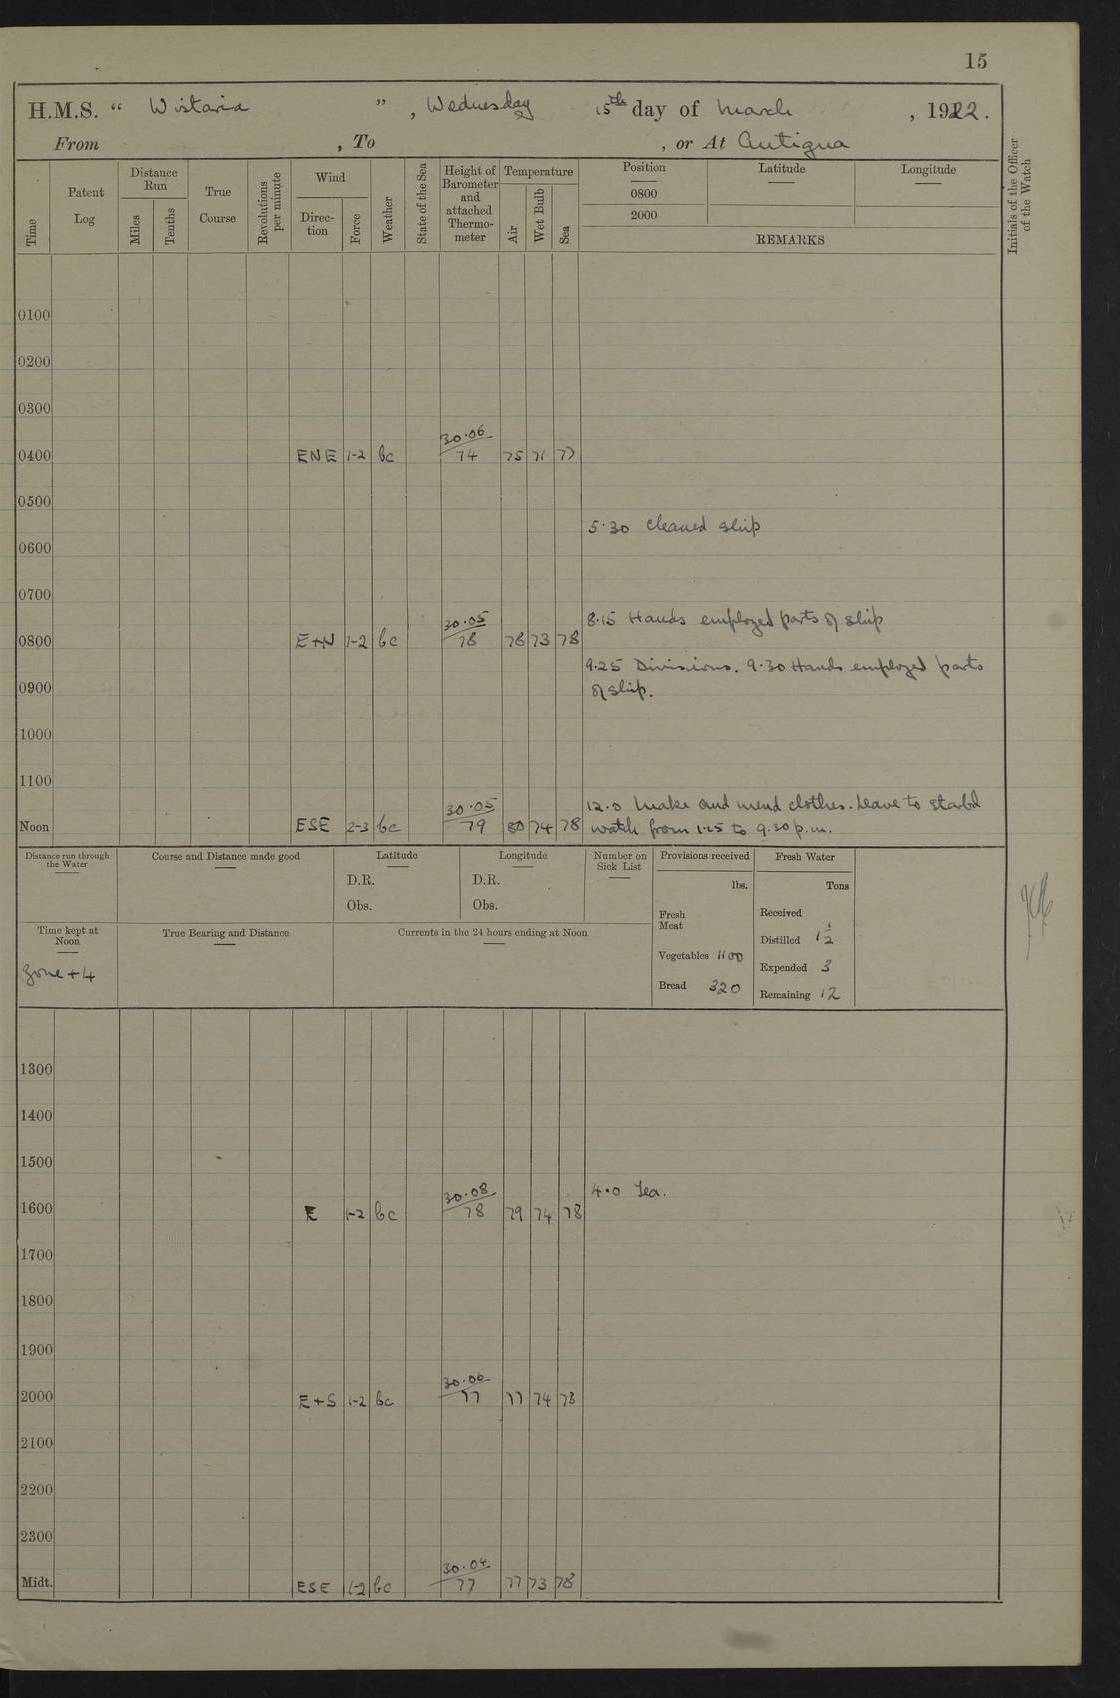 15
H.M.S. “ Wistaria ” , Wednesday 15th day of March , 1922.
From , To , or At Antigua
Time
Patent Log
Distance Run
Miles
Tenths
True Course
Revolutions per minute
Wind
Direc-tion
Force
Weather
State of the Sea
Height of Barometer and attached Thermo-meter
Temperature
Air
Wet Bulb
Sea
Position
0800
2000
Latitude
Longitude
REMARKS
Initials of the Officer of the Watch
0100
0200
0300
30.06
0400 ENE 1-2 bc 74 75 71 77
0500
5.30 Cleaned ship
0600
0700
30.05 8.15 Hands employed parts of ship
0800 E+N 1-2 bc 78 78 73 78
9.25 Divisions. 9.30 Hands employed parts
0900 of ship.
1000
1100
30.05 12.0 Make and mend clothes. Leave to starbd
Noon ESE 2-3 bc 79 80 74 78 watch from 1.15 to 9.30 p.m.
Distance run through the Water
Course and Distance made good
Latitude
D.R.
Obs.
Longitude
D.R.
Obs.
Number on Sick List
Provisions received
lbs.
Fresh Meat
Vegetables 1100
Bread 320
Fresh Water
Tons
Received
Distilled 1½
Expended 3
Remaining 12
Time kept at Noon
Zone +4
True Bearing and Distance
Currents in the 24 hours ending at Noon
1300
1400
1500
30.08 4.0 Tea.
1600 E 1-2 bc 78 79 74 78
1700
1800
1900
30.06
2000 E+S 1-2 bc 77 77 74 78
2100
2200
2300
30.04
Midt. ESE 1-2 bc 77 77 73 78